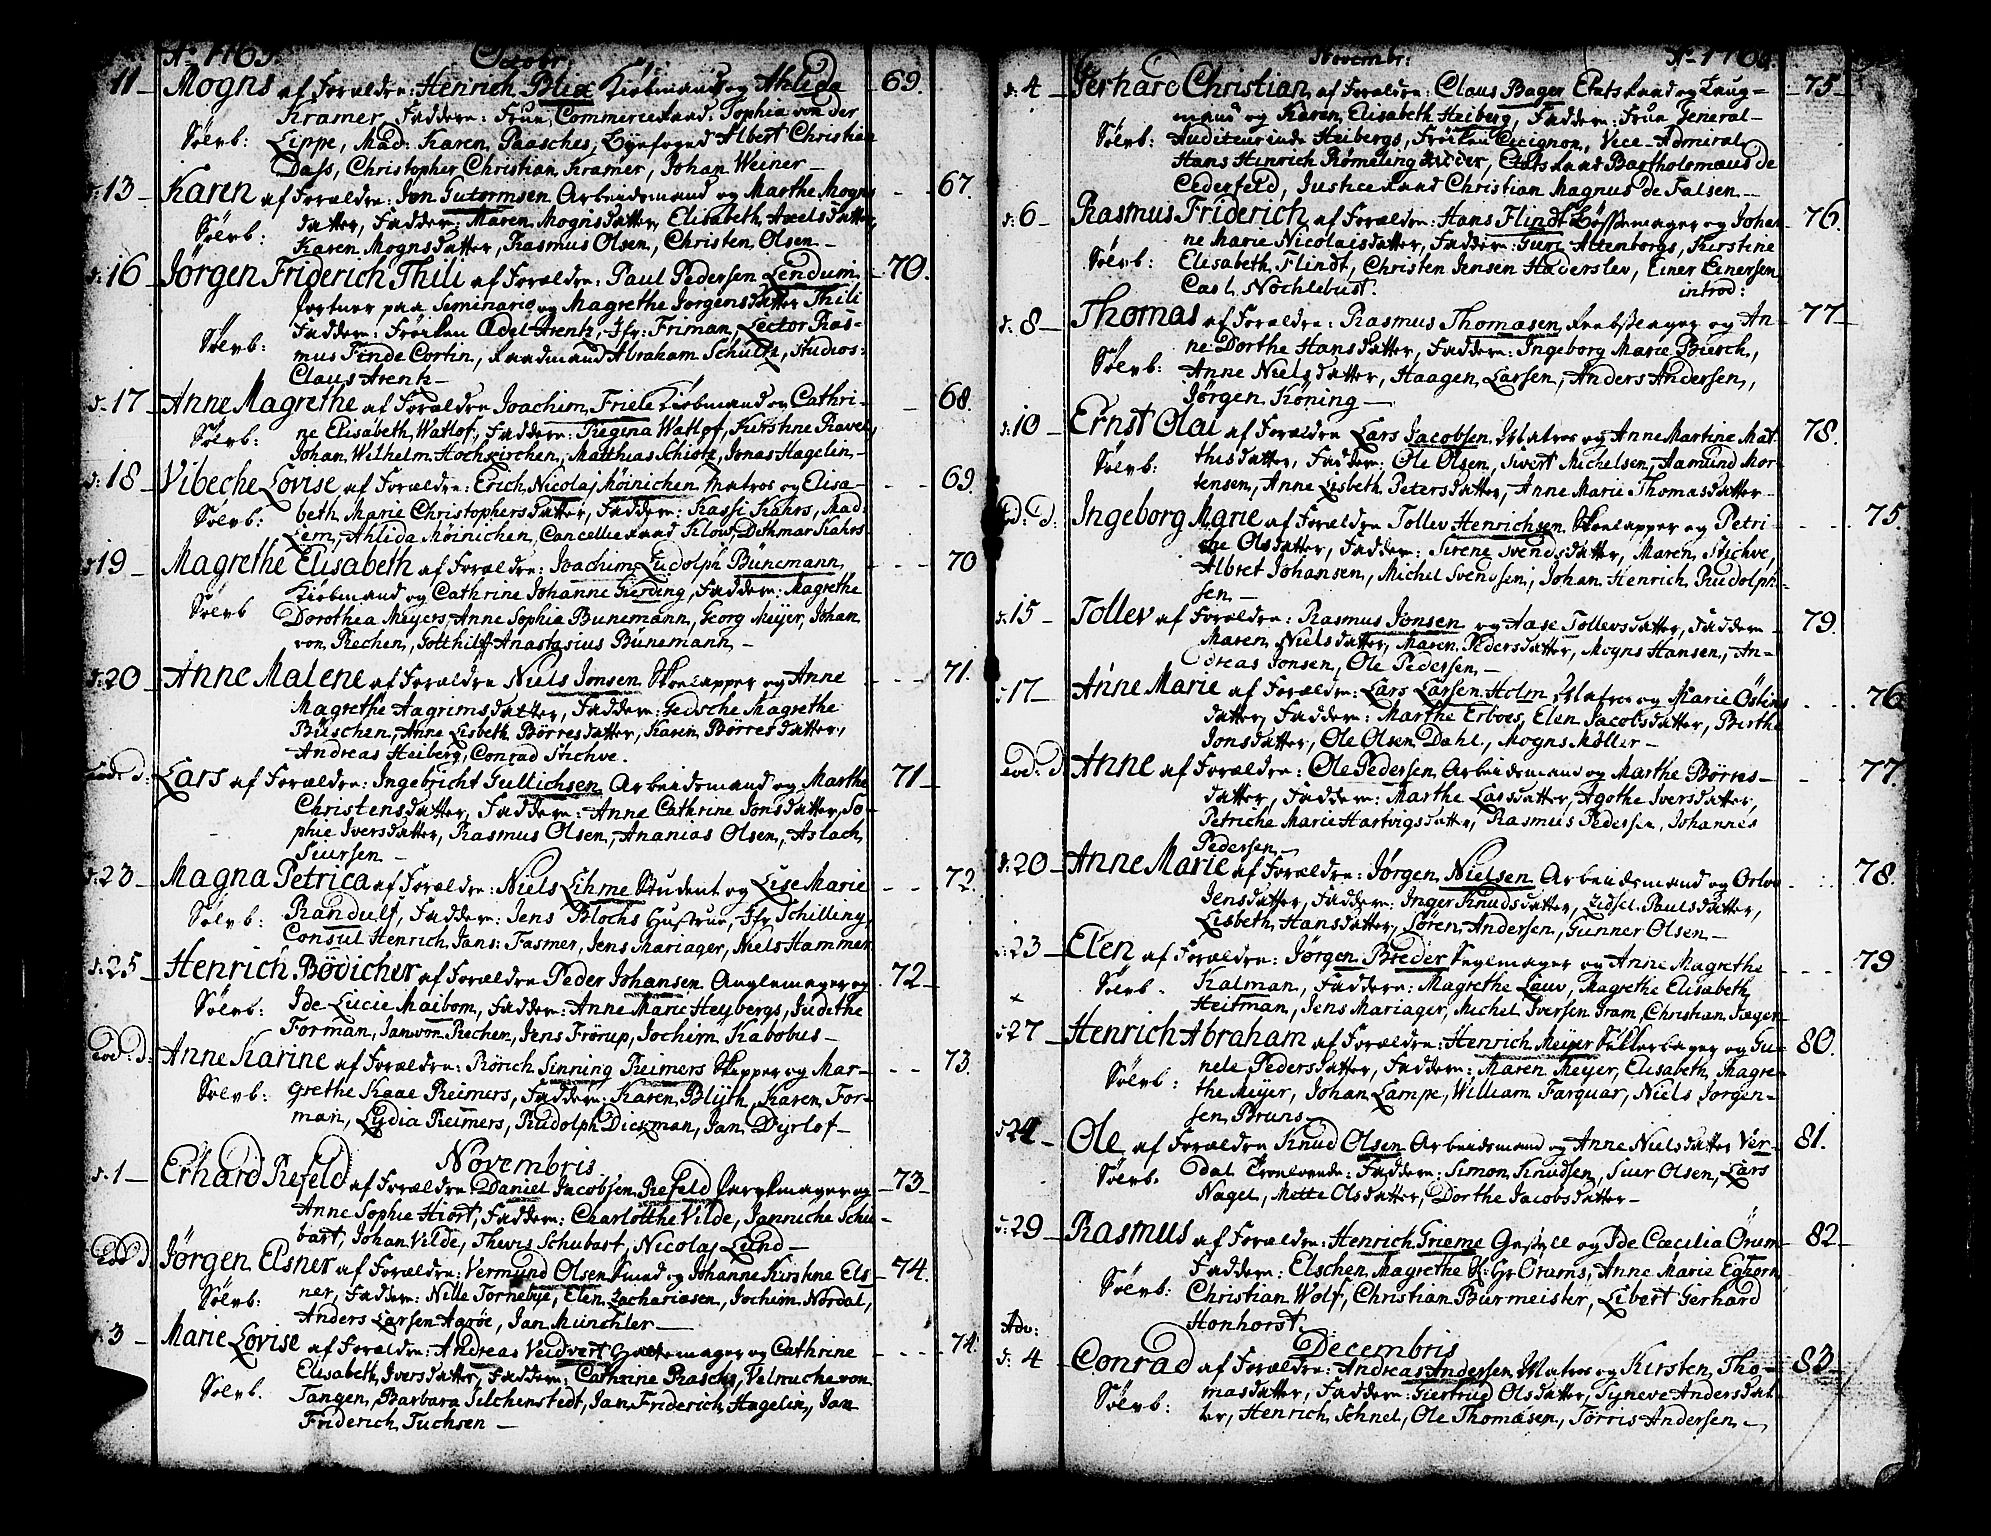 Ao 1763. Octobr:
11 Mogns af Forældre: Henrich Blix Kiøbmand og Ahlida 69.
Kramer, Faddere: Frue Commerceraad: Sophia von der
Sølvb: Lippe, Mad: Karen Paasches, Byefoged Albert Christian
Dass, Christopher Christian Kramer, Johan Weiner
d: 13 Karen af Forældre: Jon Gutormsen Arbeidsmand og Marthe Mogns 67.
Sølvb: datter, Faddere: Maren Mognsdatter, Elisabeth Axelsdatter,
Karen Mognsdatter, Rasmus Olsen, Christen Olsen
d: 16 Jørgen Friderich Thili af Forældre: Paul Pedersen Lendum 70.
fortner paa Seminario og Magrethe Jørgensdatter Thili
Sølvb: Faddere: Frøiken Adel Arentz, Jfr: Friman, Lector Ras-
mus Finde Cortin, Raadmand Abraham Schultz, Studios:
Claus Arentz
d: 17 Anne Magrethe af Forældre Joachim Friele Kiøbmand og Cathri- 68.
Sølvb: ne Elisabeth Watlof, Faddere: Regina Watlof, Kirstine Raven,
Johan Wilhelm Hochkirchen, Matthias Schiøtz, Jonas Hagelin
d: 18 Vibeche Lovise af Forældre: Erich Nicolaj Møinichen Matros og Elisa- 69.
Sølvb: beth Marie Christophersdatter, Faddere: Kassi Kahrs, Mad:
Lem, Ahlida Møinichen, Cancellieraad Kelow, Dithmar Kahrs
d: 19 Magrethe Elisabeth af Forældre: Joachim Ludolph Bünemann 70
Kiøbmand og Cathrine Johanne Gierding, Faddere: Magrethe
Sølvb Dorothea Meyers, Anne Sophia Bunemann, Georg Meyer, Johan
von Rechen, Gotthilff Anastasius Bunemann
d: 20 Anne Malene af Forældre Niels Jonsen Skoelapper og Anne 71.
Magrethe Aagrimsdatter, Faddere: Gedsche Magrethe
Büschen, Anne Lisbeth Børresdatter, Karen Børresdatter,
Andreas Heiberg, Conrad Stichve.
Eod: d: Lars af Forældre: Ingebricht Gullichsen Arbeidsmand og Marthe 71
Christensdatter, Faddere: Anne Cathrine Jonsdatter, So-
phie Iversdatter, Rasmus Olsen, Ananias Olsen, Aslach
Siursen
d: 23 Magna Petrica af Forældre: Niels Lihme Student og Lise Marie 72.
Sølvb: Randulf, Faddere: Jens Blochs Hustrue, Jfr Schilling,
Consul Henrich Jans: Fasmer, Jens Mariager, Niels Hammer
d: 25 Henrich Bødicher af Forældre Peder Johansen Anglemager og 72
Sølvb: Ide Lucie Maibom, Faddere: Anne Marie Heybergs, Judethe
Forman, Jan von Rechen, Jens Frørup, Jochim Kabobus
Eod: d: Anne Karine af Forældre: Rørich Sinning Reimers Skipper og Mar- 73.
Sølvb: grethe Kaae Reimers, Faddere: Karen Blijth, Karen For-
man, Lydia Reimers, Rudolph Dickman, Jan Dyrlof
Novembris
d: 1 Erhard Refeld af Forældre: Daniel Jacobsen Refeld og 73
Anne Sophie Hiort, Faddere: Charlotthe Vilde, Janniche Schu-
bart, Johan Vilde, Thevis Schubart, Nicolaj Lund
Eod: d Jørgen Elsner af Forældre: Vermund Olsen Smed og Johanne Kirstine Els- 74.
Sølvb: ner, Faddere: Nille Tornebye, Elen Zachariasen, Jochim Nordal,
Anders Larsen Agrøe, Jan Münchler
d: 3 Marie Lovise af Forældre: Andreas Veidvert og Cathrine 74
Elisabeth Iversdatter, Faddere: Cathrine Raschs, Velmuche von
Sølvb. Tangen, Barbara Silchenstedt, Jan Friderich Hagelin, Jan
Friderich Tuchsen
Novembr: Ao 1763.
d: 4 Gerhard Christian af Forældre: Claus Bager Etatsraad og Laug- 75
mand og Karen Elisabeth Heiberg, Faddere: Frue General-
Sølvb: Auditeurinde Heibergs, Frøiken Cicignon, Vice-Admiral
Hans Hinrich Rømeling Ridder, Etatsraad Bartholomæus de
Cederfeld, Justiceraad Christian Magnus de Falsen
d: 6 Rasmus Friderich af Forældre: Hans Flindt Bøssemager og Johan 76
ne Marie Nicolaisdatter, Faddere: Guri Altenborgs, Kirstine
Sølvb: Elisabeth Flindt, Christen Jensen Haderslev, Einer Einersen,
Casl. Nochlebust. introd:
d: 8 Thomas af Forældre: Rasmus Thomasen Reebslager og An- 77
ne Dorthe Hansdatter, Faddere: Ingeborg Marie Biersch,
Sølvb: Anne Nielsdatter, Haagen Larsen, Anders Andersen,
Jørgen Køning
d: 10 Ernst Olai af Forældre Lars Jacobsen Matros og Anne Martine Mat- 78.
Sølvb: thisdatter, Faddere: Ole Olsen, Sivert Michelsen, Aamund Mor-
tensen, Anne Lisbeth Petersdatter, Anne Marie Thomasdatter
Eod: d: Ingeborg Marie af Forældre Tollev Henrichsen Skoelapper og Petri- 75
che Olsdatter, Faddere: Sirene Svendsdatter, Maren Stichve,
Albret Johansen, Michel Svendsen, Johan Henrich Rudolph-
sen
d: 15 Tollev af Forældre: Rasmus Jonsen og Aase Tollevsdatter, Faddere 79.
Maren Nielsdatter, Maren Pedersdatter, Mogns Hansen, An-
dreas Jonsen, Ole Pedersen
d: 17 Anne Marie af Forældre: Lars Larsen Holm Matros og Marie Østens 76
datter, Faddere: Marthe Erboes, Elen Jacobsdatter, Birthe
Jonsdatter, Ole Olsen Dahl, Mogns Møller
Eod: d Anne af Forældre: Ole Pedersen Arbeidsmand og Marthe Børres- 77.
datter, Faddere: Marthe Lassdatter, Agothe Iversdatter,
Petriche Marie Hartvigsdatter, Rasmus Pedersen, Johannes
Pedersen
d: 20 Anne Marie af Forældre: Jørgen Nielsen Arbeidsmand og Orloe 78.
Jensdatter, Faddere: Inger Knudsdatter, Zidsel Paulsdatter,
Lisbeth Hansdatter, Søren Andersen, Gunner Olsen
d: 23 Elen af Forældre: Jørgen Breder Seglmager og Anne Magrethe 79
Sølvb. Kalman, Faddere: Magrethe Lauv, Magrethe Elisabeth
× Heitman, Jens Mariager, Michel Iversen Fram, Christian Jæger
d: 27 Henrich Abraham af Forældre: Henrich Meyer og Gu- 80.
nele Pedersdatter, Faddere: Maren Meyer, Elisabeth Magre-
Sølvb: the Meyer, Johan Lampe, William Farquar, Niels Jørgen-
sen Bruns
d 24 Ole af Forældre Knud Olsen Arbeidsmand og Anne Nielsdatter Ver- 81.
Sølvb. dal Troelovede: Faddere: Simon Knudsen, Siur Olsen, Lars
Nagel, Mette Olsdatter, Dorthe Jacobsdatter
d: 29 Rasmus af Forældre: Henrich Grieme Gesell og Ide Cæcilia Ørum 82
Faddere: Elschen Magrethe Sl: Hr Orums, Anne Marie Eghorn,
Sølvb: Christian Wolf, Christian Burmeister, Libert Gerhard
Honhorst.
Adv: Decembris
d: 4 Conrad af Forældre: Andreas Andersen Matros og Kirsten Tho- 83
Sølvb: masdatter, Faddere: Giertrud Olsdatter, Syneve Andersdat-
ter, Henrich Schnel, Ole Thomasen, Tørris Andersen